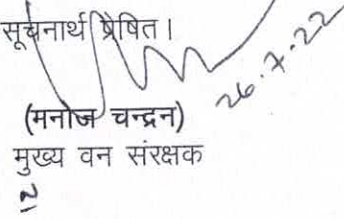 सूचनार्थ प्रेषित।
26.7.22
(मनोज चन्द्रन)
मुख्य वन संरक्षक